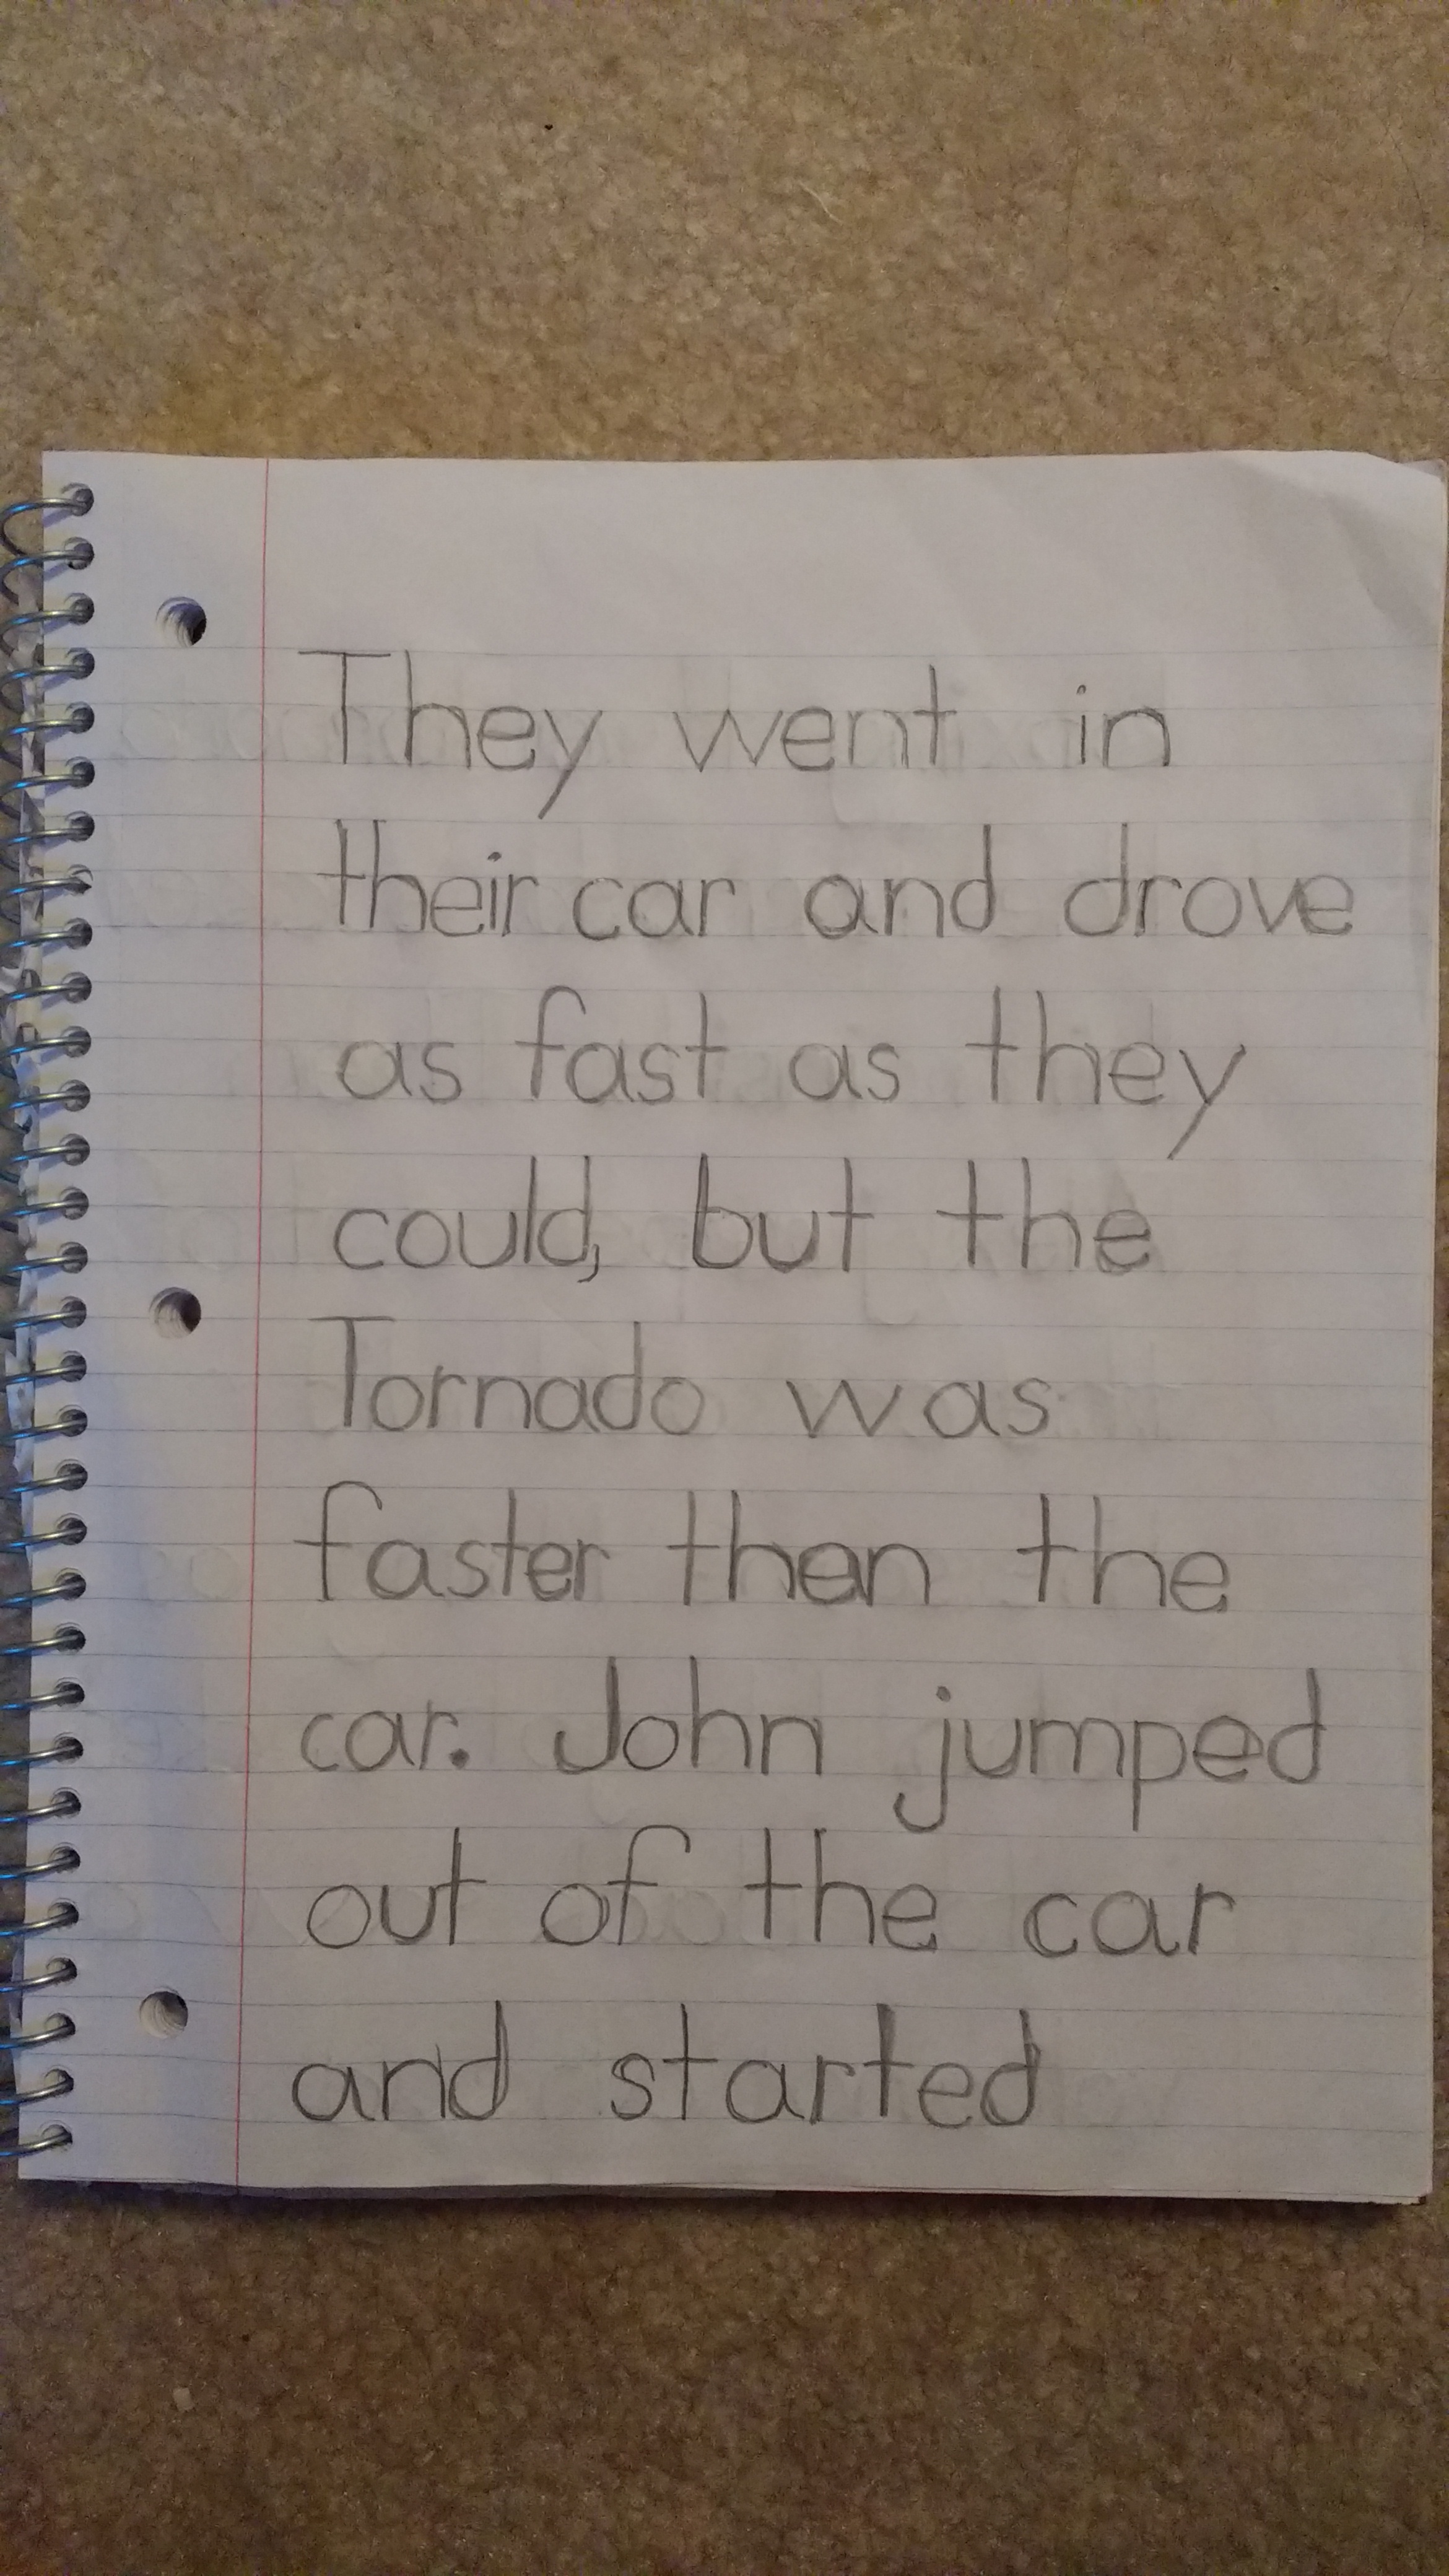 They went in
their car and drove
as fast as they
could, but the
Tornado was
faster then the
car. John jumped
out of the car
and started